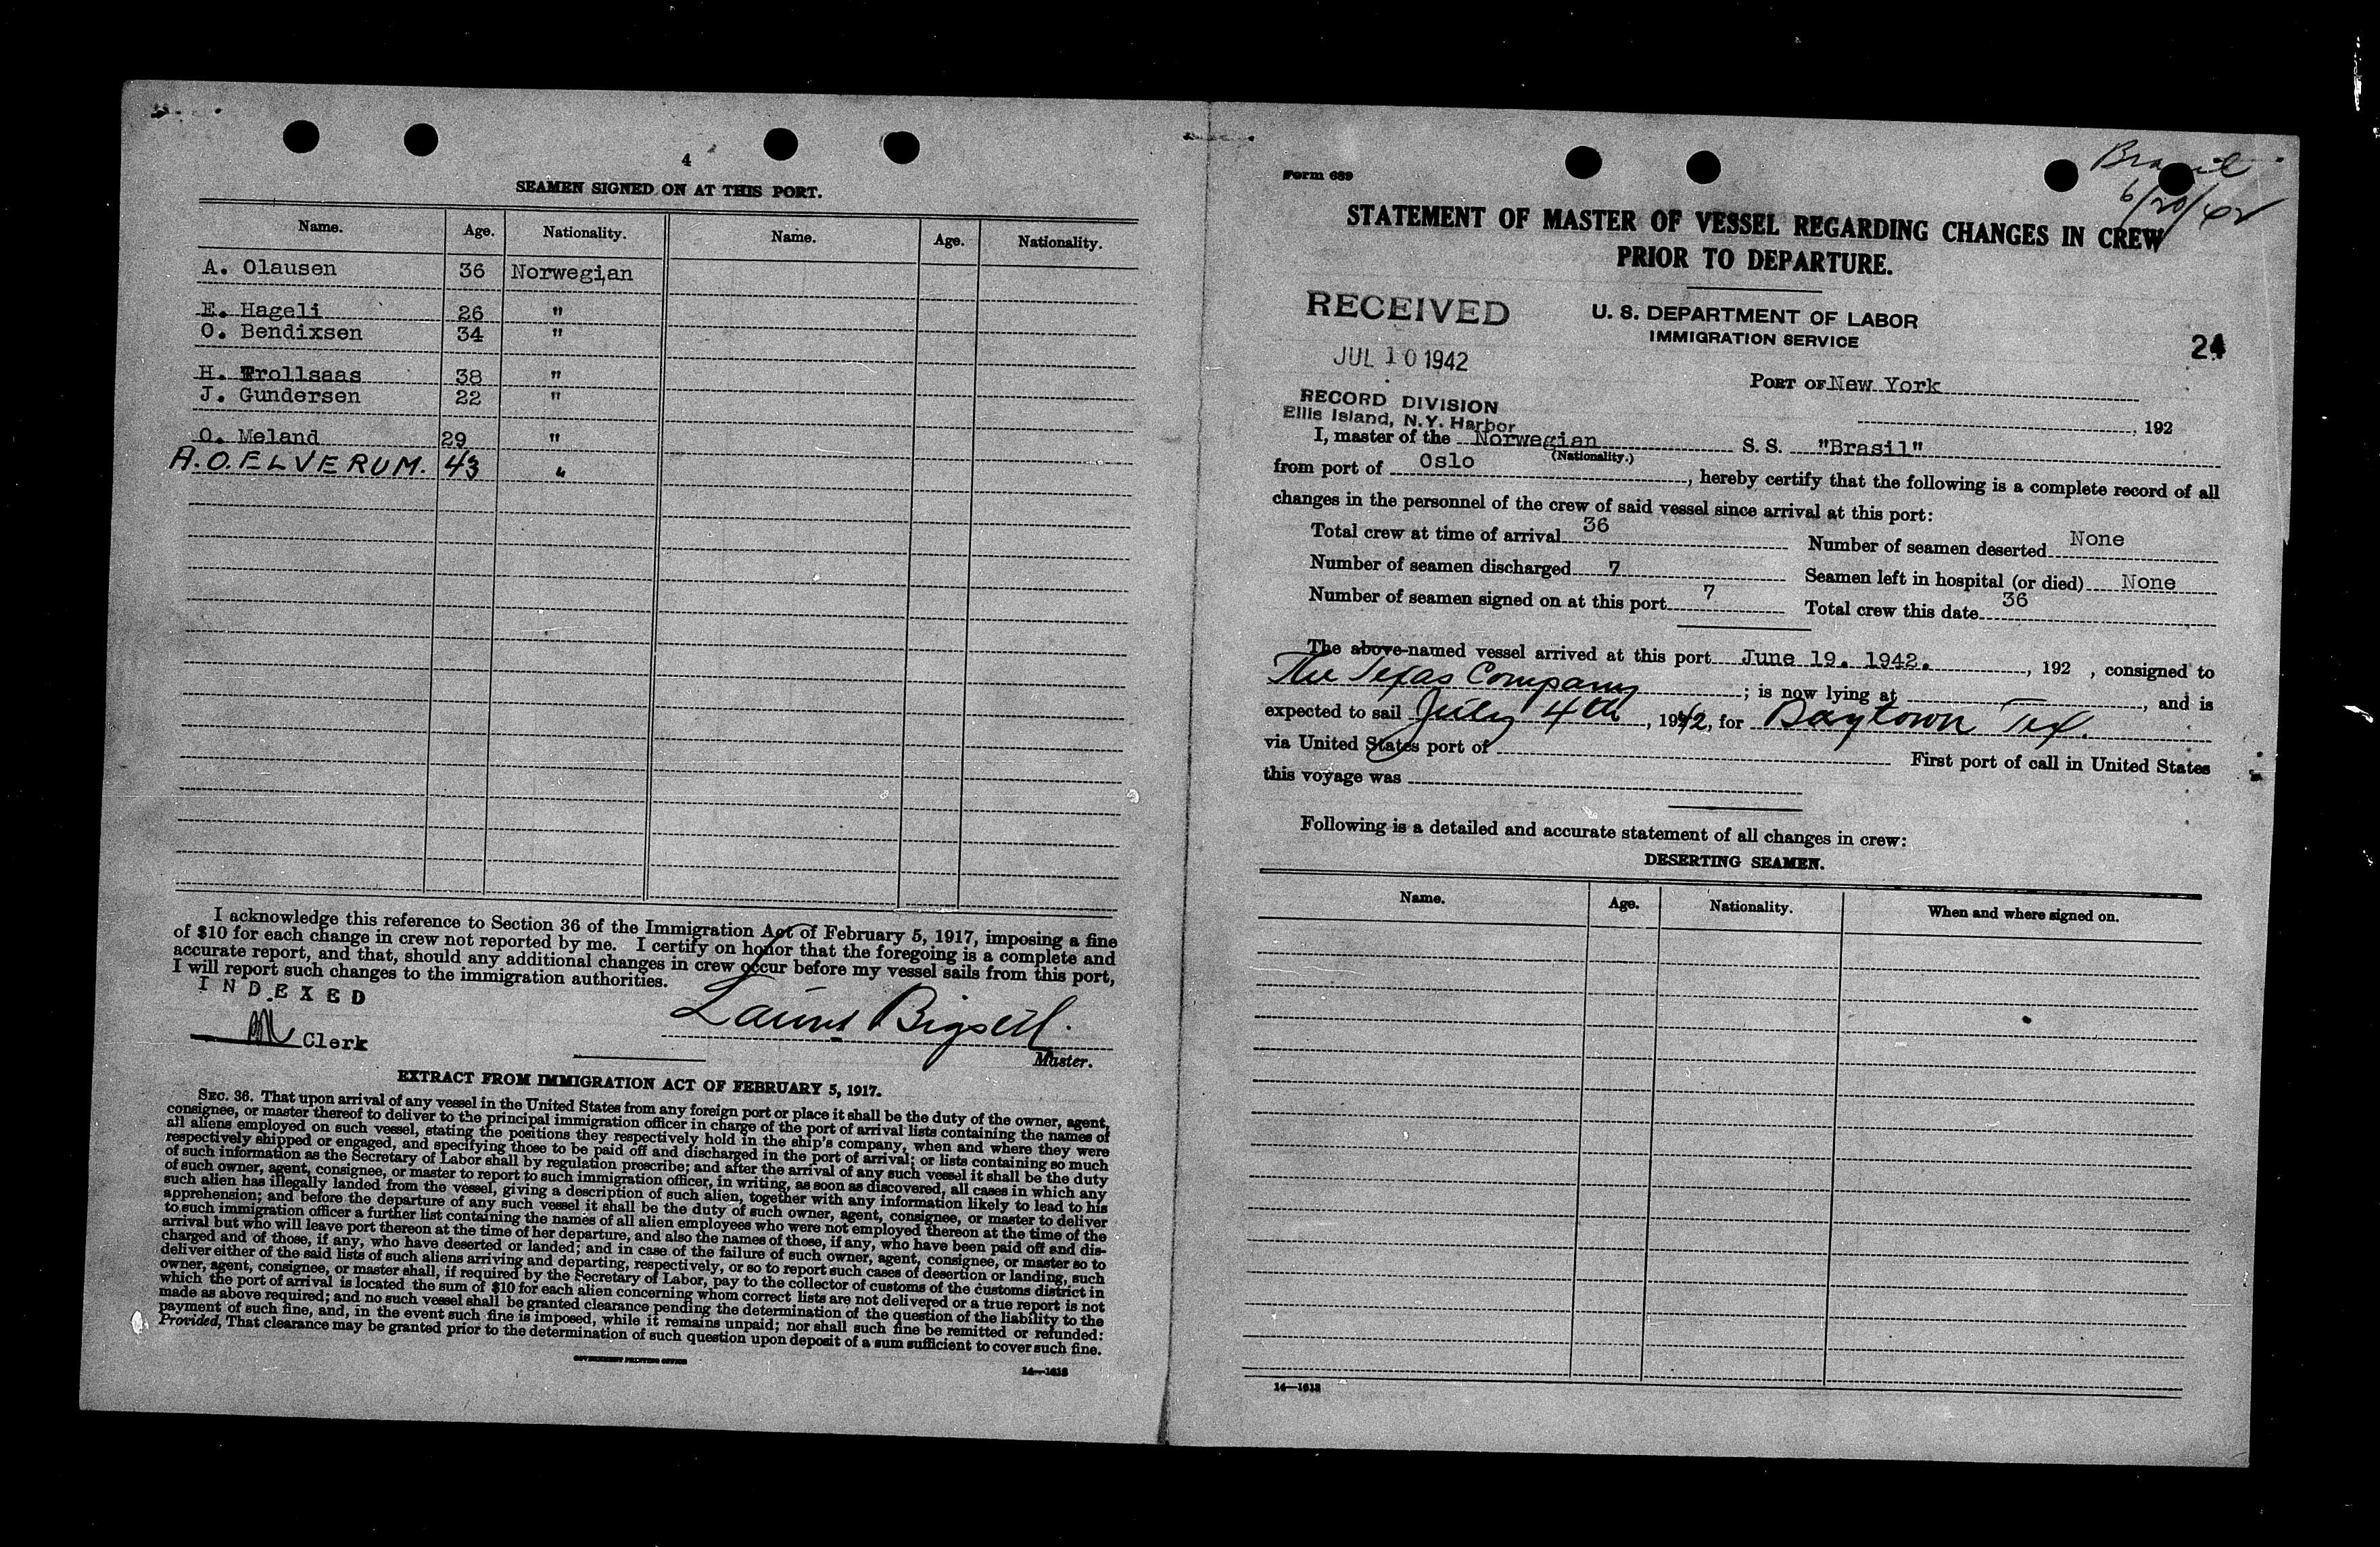 4
SEAMEN SIGNED ON AT THIS PORT.
Name. Age. Nationality. Name. Age. Nationality.
A. Olausen 36 Norwegian
E. Hageli 26 "
O. Bendixsen 34 "
H. Trollsaas 38 "
J. Gundersen 22 "
O. Meland 29 "
A. O. ELVERUM. 43 "
I acknowledge this reference to Section 36 of the Immigration Act of February 5, 1917, imposing a fine
of $10 for each change in crew not reported by me. I certify on honor that the foregoing is a complete and
accurate report, and that, should any additional changes in crew occur before my vessel sails from this port,
I will report such changes to the immigration authorities.
INDEXED
Clerk
Master.
EXTRACT FROM IMMIGRATION ACT OF FEBRUARY 5, 1917.
SEC. 36. That upon arrival of any vessel in the United States from any foreign port or place it shall be the duty of the owner, agent,
consignee, or master thereof to deliver to the principal immigration officer in charge of the port of arrival lists containing the names of
all aliens employed on such vessel, stating the positions they respectively hold in the ship's company, when and where they were
respectively shipped or engaged, and specifying those to be paid off and discharged in the port of arrival; or lists containing so much
of such information as the Secretary of Labor shall by regulation prescribe; and after the arrival of any such vessel it shall be the duty
of such owner, agent, consignee, or master to report to such immigration officer, in writing, as soon as discovered, all cases in which any
such alien has illegally landed from the vessel, giving a description of such alien, together with any information likely to lead to his
apprehension; and before the departure of any such vessel it shall be the duty of such owner, agent, consignee, or master to deliver
to such immigration officer a further list containing the names of all alien employees who were not employed thereon at the time of the
arrival but who will leave port thereon at the time of her departure, and also the names of those, if any, who have been paid off and dis-
charged and of those, if any, who have deserted or landed; and in case of the failure of such owner, agent, consignee, or master so to
deliver either of the said lists of such aliens arriving and departing, respectively, or so to report such cases of desertion or landing, such
owner, agent, consignee, or master shall, if required by the Secretary of Labor, pay to the collector of customs of the customs district in
which the port of arrival is located the sum of $10 for each alien concerning whom correct lists are not delivered or a true report is not
made as above required; and no such vessel shall be granted clearance pending the determination of the question of the liability to the
payment of such fine, and, in the event such fine is imposed, while it remains unpaid; nor shall such fine be remitted or refunded:
Provided, That clearance may be granted prior to the determination of such question upon deposit of a sum sufficient to cover such fine.
GOVERNMENT PRINTING OFFICE
14—1613
Brasil
6/20/42
Form 689
STATEMENT OF MASTER OF VESSEL REGARDING CHANGES IN CREW
PRIOR TO DEPARTURE.
RECEIVED
JUL 10 1942
RECORD DIVISION
Ellis Island, N.Y. Harbor
U. S. DEPARTMENT OF LABOR
IMMIGRATION SERVICE
24
PORT OF New York
, 192
I, master of the Norwegian S. S. "Brasil"
(Nationality.)
from port of Oslo, hereby certify that the following is a complete record of all
changes in the personnel of the crew of said vessel since arrival at this port:
Total crew at time of arrival 36 Number of seamen deserted None
Number of seamen discharged 7 Seamen left in hospital (or died) None
Number of seamen signed on at this port 7 Total crew this date 36
The above-named vessel arrived at this port June 19. 1942., 192 , consigned to
The Texas Company; is now lying at , and is
expected to sail July 4th, 1942, for Baytown Tex.
via United States port of First port of call in United States
this voyage was
Following is a detailed and accurate statement of all changes in crew:
DESERTING SEAMEN.
Name. Age. Nationality. When and where signed on.
14—1613